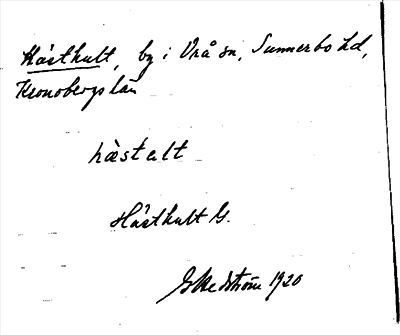 Hästhult, by i Vrå sn, Sunnerbo hd,
Kronobergs län
hästält
Hästhult G.
Ekedström 1920